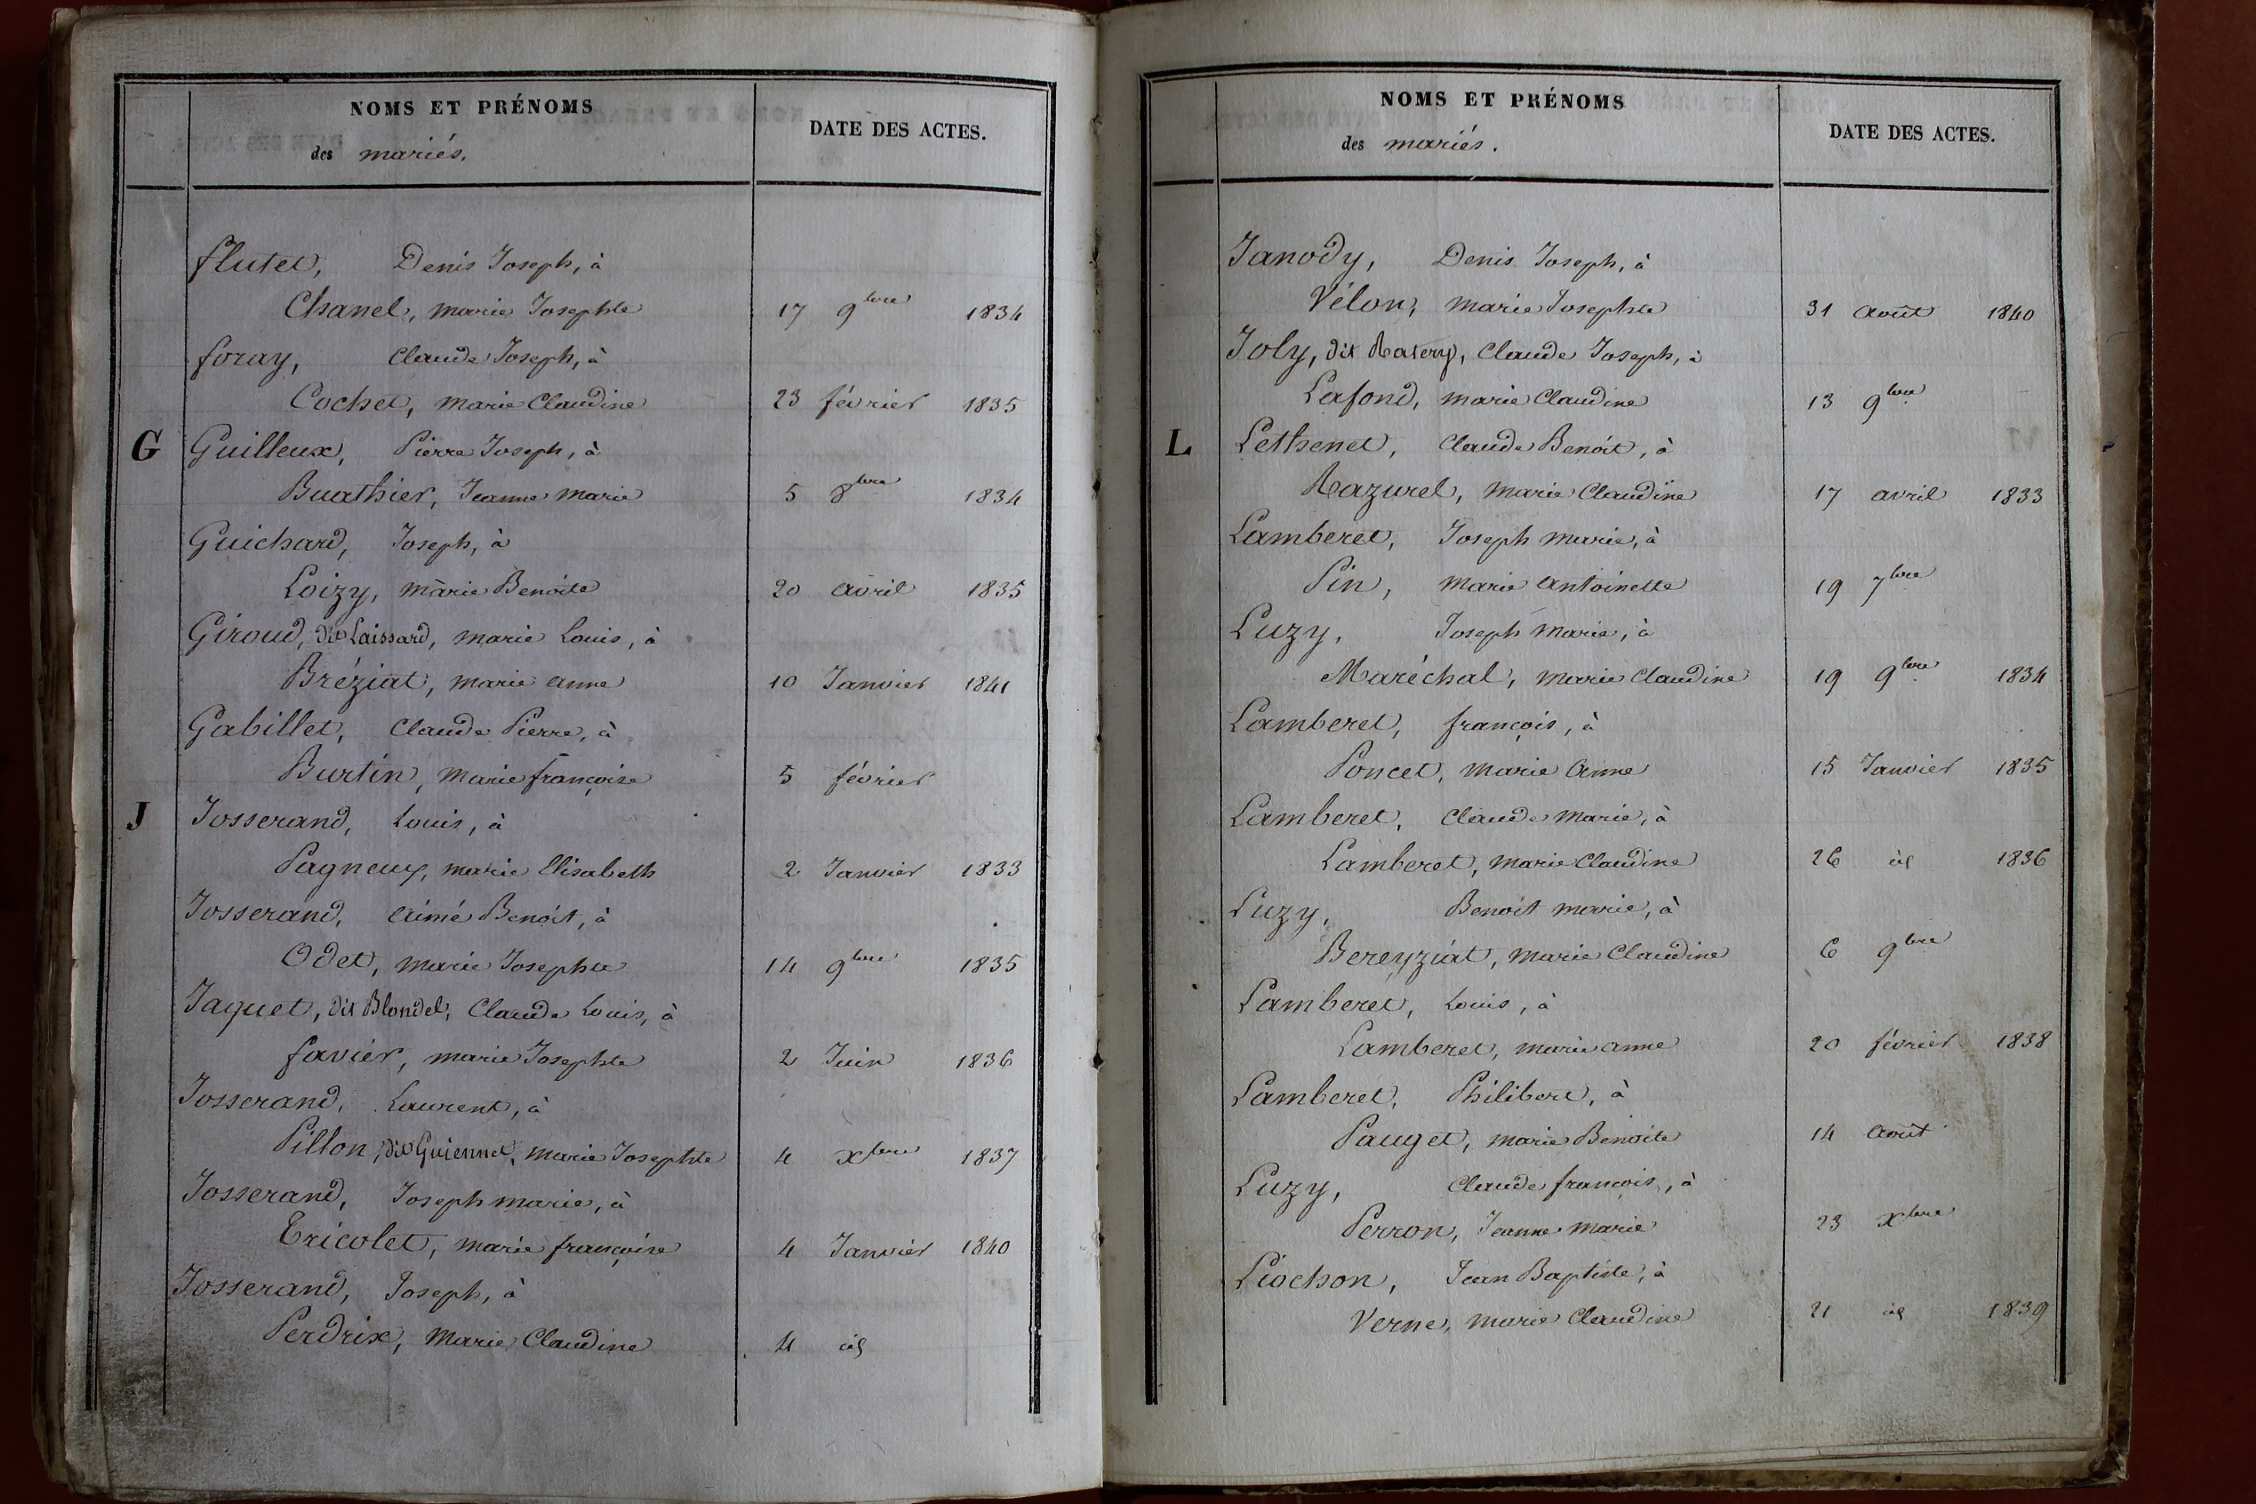 NOMS ET PRÉNOMS
des mariés.
DATE DES ACTES.
flutet, Denis Joseph, à
Chanel, marie Josephte 17 9bre 1834
foray, Claude Joseph, à
Cochet, marie Claudine 23 février 1835
G Guilleux, Pierre Joseph, à
Buathier, Jeanne marie 5 8bre 1834
Guichard, Joseph, à
Loizy, marie Benoite 20 avril 1835
Giroud, dit Laissard, marie Louis, à
Bréziat, marie anne 10 Janvier 1841
Gabillet, Claude Pierre, à
Burtin, marie françoise 5 février
J Josserand, Louis, à
Pagneux, marie Elisabeth 2 Janvier 1833
Josserand, aimé Benoit, à
Odet, marie Josephte 14 9bre 1835
Jaquet, dit Blondel, Claude Louis, à
favier, marie Josephte 2 Juin 1836
Josserand, Laurent, à
Pillon, dit Guiennet, marie Josephte 4 xbre 1837
Josserand, Joseph marie, à
Tricolet, marie françoise 4 Janvier 1840
Josserand, Joseph, à
Perdrix, marie Claudine 4 id
NOMS ET PRÉNOMS
des mariés.
DATE DES ACTES.
Janody, Denis Joseph, à
Vélon, marie Josephte 31 août 1840
Joly, dit Ratery, Claude Joseph, à
Lafond, marie Claudine 13 9bre
L Lethenet, Claude Benoit, à
Razurel, marie Claudine 17 avril 1833
Lamberet, Joseph marie, à
Pin, marie antoinette 19 7bre
Luzy, Joseph marie, à
Maréchal, marie Claudine 19 9bre 1834
Lamberet, françois, à
Poncet, marie anne 15 Janvier 1835
Lamberet, Claude marie, à
Lamberet, marie Claudine 26 id 1836
Luzy, Benoit marie, à
Bereyziat, marie Claudine 6 9bre
Lamberet, Louis, à
Lamberet, marie anne 20 février 1838
Lamberet, Philibert, à
Pauget, marie Benoite 14 août
Luzy, Claude françois, à
Perron, Jeanne marie 23 xbre
Liochon, Jean Baptiste, à
Verne, marie Claudine 21 id 1839